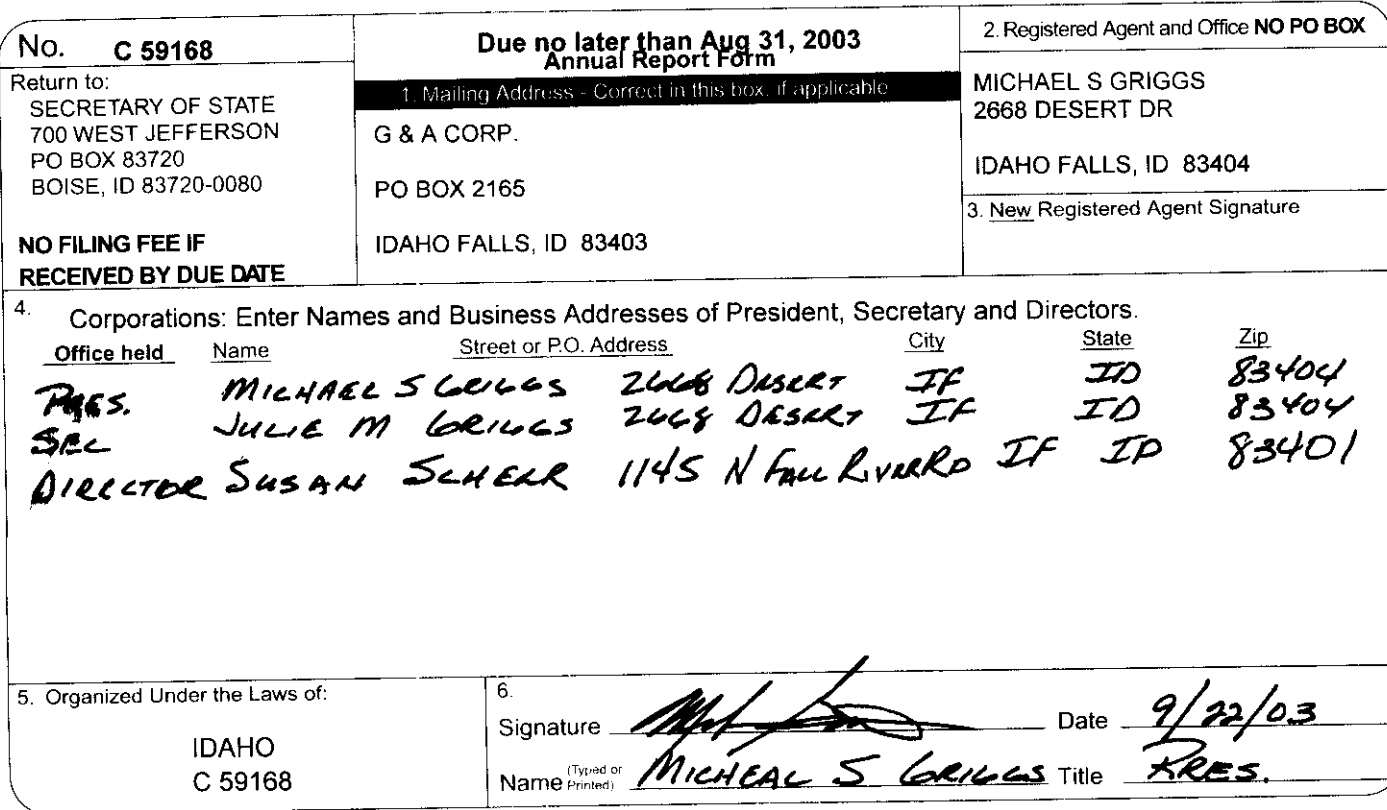 No. C 59168
Return to:
SECRETARY OF STATE
700 WEST JEFFERSON
PO BOX 83720
BOISE, ID 83720-0080
NO FILING FEE IF
RECEIVED BY DUE DATE
Due no later than Aug 31, 2003
Annual Report Form
1. Mailing Address - Correct in this box, if applicable
G & A CORP.
PO BOX 2165
IDAHO FALLS, ID 83403
2. Registered Agent and Office NO PO BOX
MICHAEL S GRIGGS
2668 DESERT DR
IDAHO FALLS, ID 83404
3. New Registered Agent Signature
4. Corporations: Enter Names and Business Addresses of President, Secretary and Directors.
Office held Name Street or P.O. Address City State Zip
PRES. MICHAEL S GRIGGS 2668 DESERT IF ID 83404
SEC JULIE M GRIGGS 2668 DESERT IF ID 83404
DIRECTOR SUSAN SCHERR 1145 N FALL RIVER RD IF ID 83401
5. Organized Under the Laws of:
IDAHO
C 59168
6.
Signature Date 9/22/03
Name (Typed or Printed) MICHEAL S GRIGGS Title PRES.